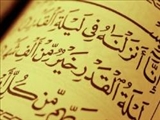 إِنَّا أَنزَلْنَاهُ فِي لَيْلَةِ الْقَدْرِ
لَيْلَةُ الْقَدْرِ خَيْرٌ مِّنْ أَلْفِ
مِّن كُلِّ